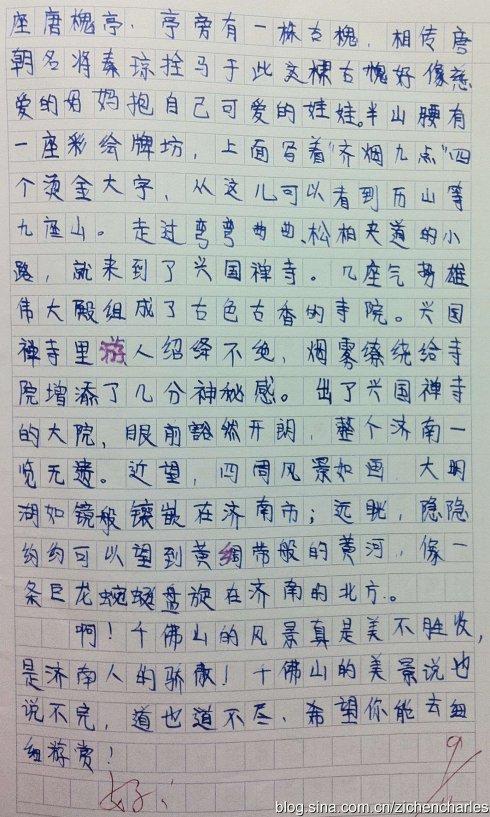 座唐槐亭.亭旁有一株古槐,相传唐
朝名将秦琼拴马于此这棵古槐好像慈
爱的母妈抱自己可爱的娃娃。半山腰有
一座彩绘牌坊,上面写着“齐烟九点”四
个烫金大字,从这儿可以看到历山等
九座山。走过弯弯曲曲、松柏夹道的小
路,就来到了兴国禅寺。几座气势雄
伟大殿组成了古色古香的寺院。兴国
禅寺里游人绍绎不绝,烟雾缭绕给寺
院增添了几分神秘感。出了兴国禅寺
的大院,眼前豁然开朗,整个济南一
览无遗。近望,四周风景如画,大明
湖如镜般镶嵌在济南市;远眺,隐隐
约约可以望到黄绸带般的黄河,像一
条巨龙蜿蜒盘旋在济南的北方。
啊!千佛山的风景真是美不胜收,
是济南人的骄傲!千佛山的美景说也
说不完,道也道不尽.希望你能去细
细游赏!
好!
blog.sina.com.cn/zichencharles